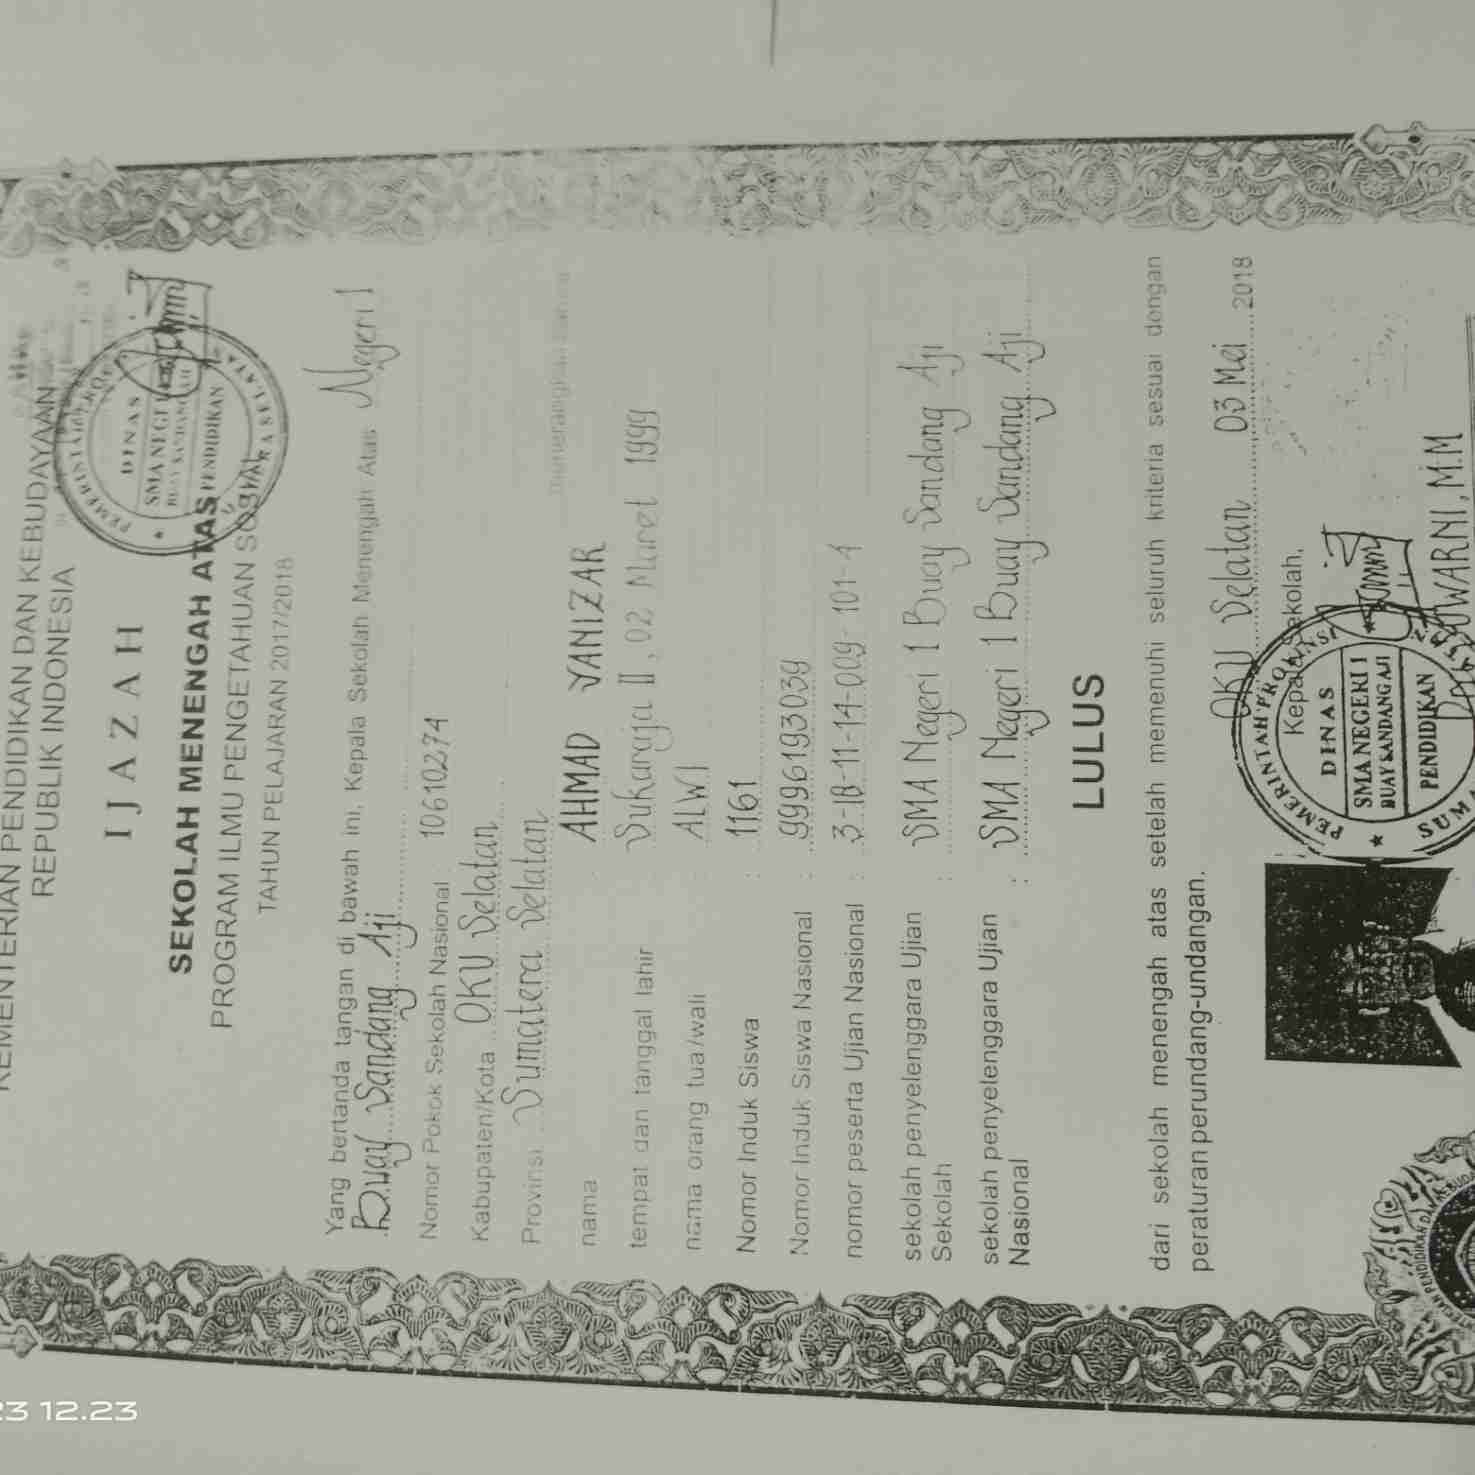 KEMENTERIAN PENDIDIKAN DAN KEBUDAYAAN
REPUBLIK INDONESIA
IJAZAH
SEKOLAH MENENGAH ATAS
PROGRAM ILMU PENGETAHUAN SOSIAL
TAHUN PELAJARAN 2017/2018
DINAS
SMA NEGERI
PENDIDIKAN
Yang bertanda tangan di bawah ini, Kepala Sekolah Menengah Atas Negeri 1
Buay Sandang Aji
Nomor Pokok Sekolah Nasional 10610274
Kabupaten/Kota OKU Selatan
Provinsi Sumatera Selatan
menerangkan bahwa
nama : AHMAD SANIZAR
tempat dan tanggal lahir : Sukaraja II, 02 Maret 1999
nama orang tua/wali : ALWI
Nomor Induk Siswa : 1161
Nomor Induk Siswa Nasional : 9996193039
nomor peserta Ujian Nasional : 3-18-11-14-009-101-4
sekolah penyelenggara Ujian : SMA Negeri 1 Buay Sandang Aji
Sekolah
sekolah penyelenggara Ujian : SMA Negeri 1 Buay Sandang Aji
Nasional
LULUS
dari sekolah menengah atas setelah memenuhi seluruh kriteria sesuai dengan
peraturan perundang-undangan.
OKU Selatan 03 Mei 2018
Kepala Sekolah,
PEMERINTAH PROVINSI
DINAS
SMA NEGERI 1
BUAY SANDANG AJI
PENDIDIKAN
SUWARNI, M.M
23 12.23